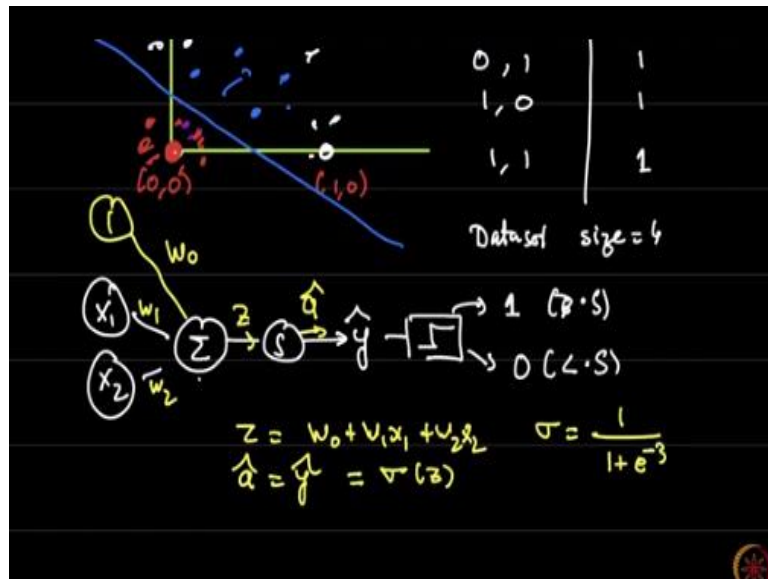 0,1 | 1
1,0 | 1
1,1 | 1
(0,0) (1,0)
Dataset size = 4
1
W0
X1 w1
X2 w2
Σ z S â ŷ
1 (≥ .5)
0 (< .5)
z = w0 + w1x1 + w2x2
σ = 1 / 1 + e^-z
â = ŷ = σ(z)